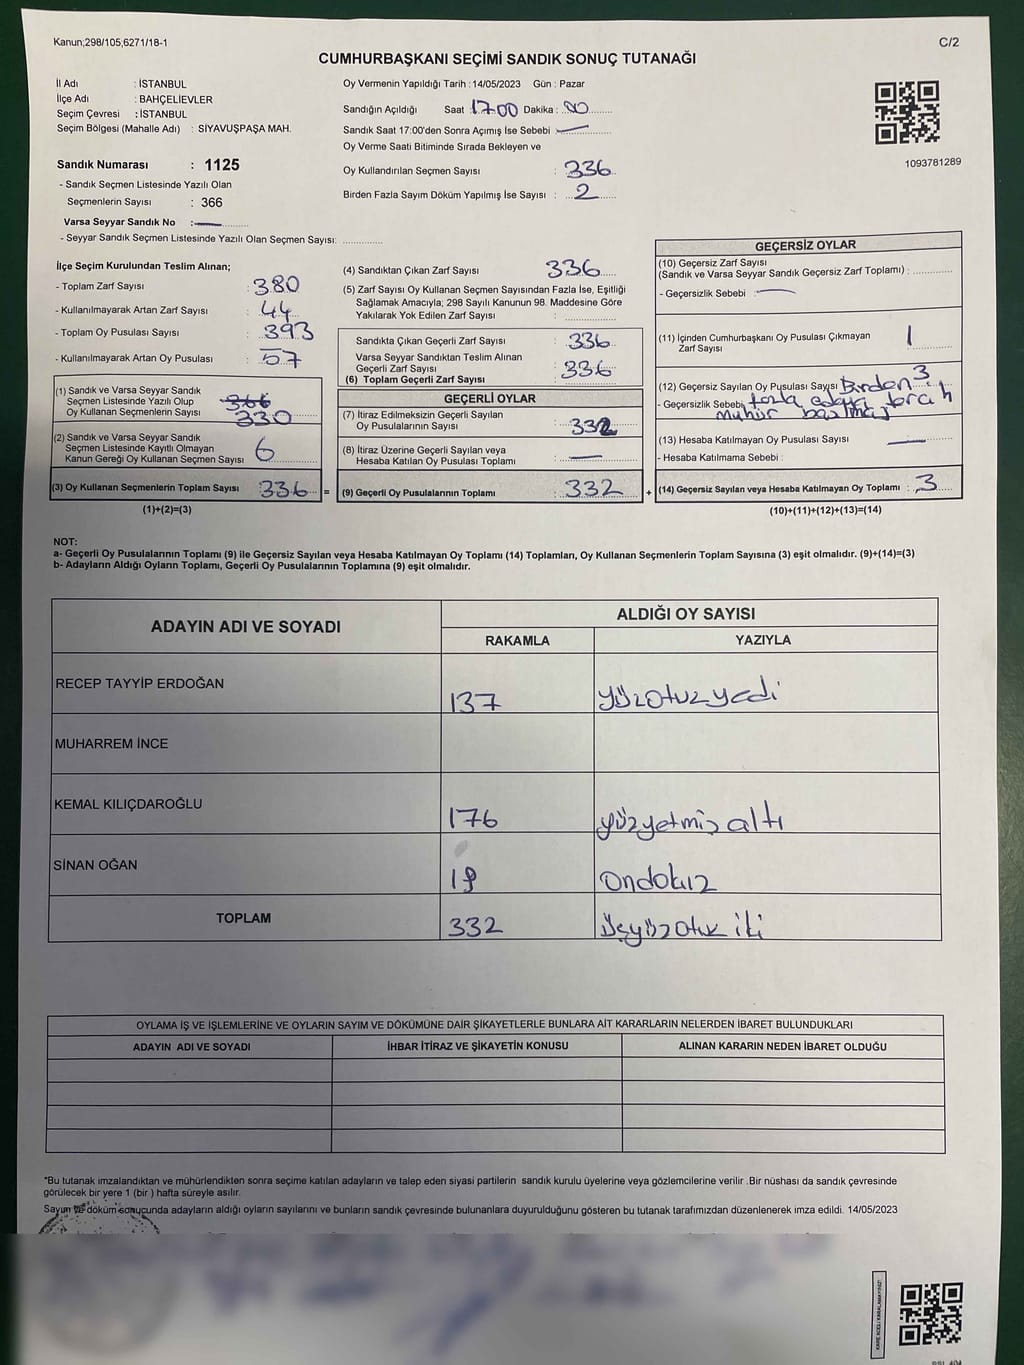 Kanun;298/105,6271/18-1
C/2
CUMHURBAŞKANI SEÇİMİ SANDIK SONUÇ TUTANAĞI
İl Adı : İSTANBUL
İlçe Adı : BAHÇELİEVLER
Seçim Çevresi : İSTANBUL
Seçim Bölgesi (Mahalle Adı) : SİYAVUŞPAŞA MAH.
Sandık Numarası : 1125
- Sandık Seçmen Listesinde Yazılı Olan
Seçmenlerin Sayısı : 366
Varsa Seyyar Sandık No :
- Seyyar Sandık Seçmen Listesinde Yazılı Olan Seçmen Sayısı:
Oy Vermenin Yapıldığı Tarih : 14/05/2023 Gün : Pazar
Sandığın Açıldığı Saat 17.00 Dakika : 00
Sandık Saat 17:00'den Sonra Açımış İse Sebebi
Oy Verme Saati Bitiminde Sırada Bekleyen ve
Oy Kullandırılan Seçmen Sayısı : 336
Birden Fazla Sayım Döküm Yapılmış İse Sayısı : 2
1093781289
İlçe Seçim Kurulundan Teslim Alınan;
- Toplam Zarf Sayısı : 380
- Kullanılmayarak Artan Zarf Sayısı : 44
- Toplam Oy Pusulası Sayısı : 393
- Kullanılmayarak Artan Oy Pusulası : 57
(1) Sandık ve Varsa Seyyar Sandık
Seçmen Listesinde Yazılı Olup 366
Oy Kullanan Seçmenlerin Sayısı 330
(2) Sandık ve Varsa Seyyar Sandık
Seçmen Listesinde Kayıtlı Olmayan
Kanun Gereği Oy Kullanan Seçmen Sayısı 6
(3) Oy Kullanan Seçmenlerin Toplam Sayısı 336 =
(1)+(2)=(3)
(4) Sandıktan Çıkan Zarf Sayısı 336
(5) Zarf Sayısı Oy Kullanan Seçmen Sayısından Fazla İse, Eşitliği
Sağlamak Amacıyla; 298 Sayılı Kanunun 98. Maddesine Göre
Yakılarak Yok Edilen Zarf Sayısı :
Sandıkta Çıkan Geçerli Zarf Sayısı : 336
Varsa Seyyar Sandıktan Teslim Alınan
Geçerli Zarf Sayısı : 336
(6) Toplam Geçerli Zarf Sayısı
GEÇERLİ OYLAR
(7) İtiraz Edilmeksizin Geçerli Sayılan
Oy Pusulalarının Sayısı : 332
(8) İtiraz Üzerine Geçerli Sayılan veya
Hesaba Katılan Oy Pusulası Toplamı :
(9) Geçerli Oy Pusulalarının Toplamı : 332 +
GEÇERSİZ OYLAR
(10) Geçersiz Zarf Sayısı
(Sandık ve Varsa Seyyar Sandık Geçersiz Zarf Toplamı) :
- Geçersizlik Sebebi :
(11) İçinden Cumhurbaşkanı Oy Pusulası Çıkmayan
Zarf Sayısı 1
(12) Geçersiz Sayılan Oy Pusulası Sayısı Birden 3
- Geçersizlik Sebebi fazla adayı tercih
mühür
(13) Hesaba Katılmayan Oy Pusulası Sayısı
- Hesaba Katılmama Sebebi :
(14) Geçersiz Sayılan veya Hesaba Katılmayan Oy Toplamı : 3
(10)+(11)+(12)+(13)=(14)
NOT:
a- Geçerli Oy Pusulalarının Toplamı (9) ile Geçersiz Sayılan veya Hesaba Katılmayan Oy Toplamı (14) Toplamları, Oy Kullanan Seçmenlerin Toplam Sayısına (3) eşit olmalıdır. (9)+(14)=(3)
b- Adayların Aldığı Oyların Toplamı, Geçerli Oy Pusulalarının Toplamına (9) eşit olmalıdır.
ADAYIN ADI VE SOYADI
ALDIĞI OY SAYISI
RAKAMLA YAZIYLA
RECEP TAYYİP ERDOĞAN 137 yüzotuzyedi
MUHARREM İNCE
KEMAL KILIÇDAROĞLU 176 yüzyetmiş altı
SİNAN OĞAN 19 Ondokuz
TOPLAM 332 üçyüzotuz iki
OYLAMA İŞ VE İŞLEMLERİNE VE OYLARIN SAYIM VE DÖKÜMÜNE DAİR ŞİKAYETLERLE BUNLARA AİT KARARLARIN NELERDEN İBARET BULUNDUKLARI
ADAYIN ADI VE SOYADI
İHBAR İTİRAZ VE ŞİKAYETİN KONUSU
ALINAN KARARIN NEDEN İBARET OLDUĞU
*Bu tutanak imzalandıktan ve mühürlendikten sonra seçime katılan adayların ve talep eden siyasi partilerin sandık kurulu üyelerine veya gözlemcilerine verilir .Bir nüshası da sandık çevresinde
görülecek bir yere 1 (bir ) hafta süreyle asılır.
Sayım ve döküm sonucunda adayların aldığı oyların sayılarını ve bunların sandık çevresinde bulunanlara duyurulduğunu gösteren bu tutanak tarafımızdan düzenlenerek imza edildi. 14/05/2023